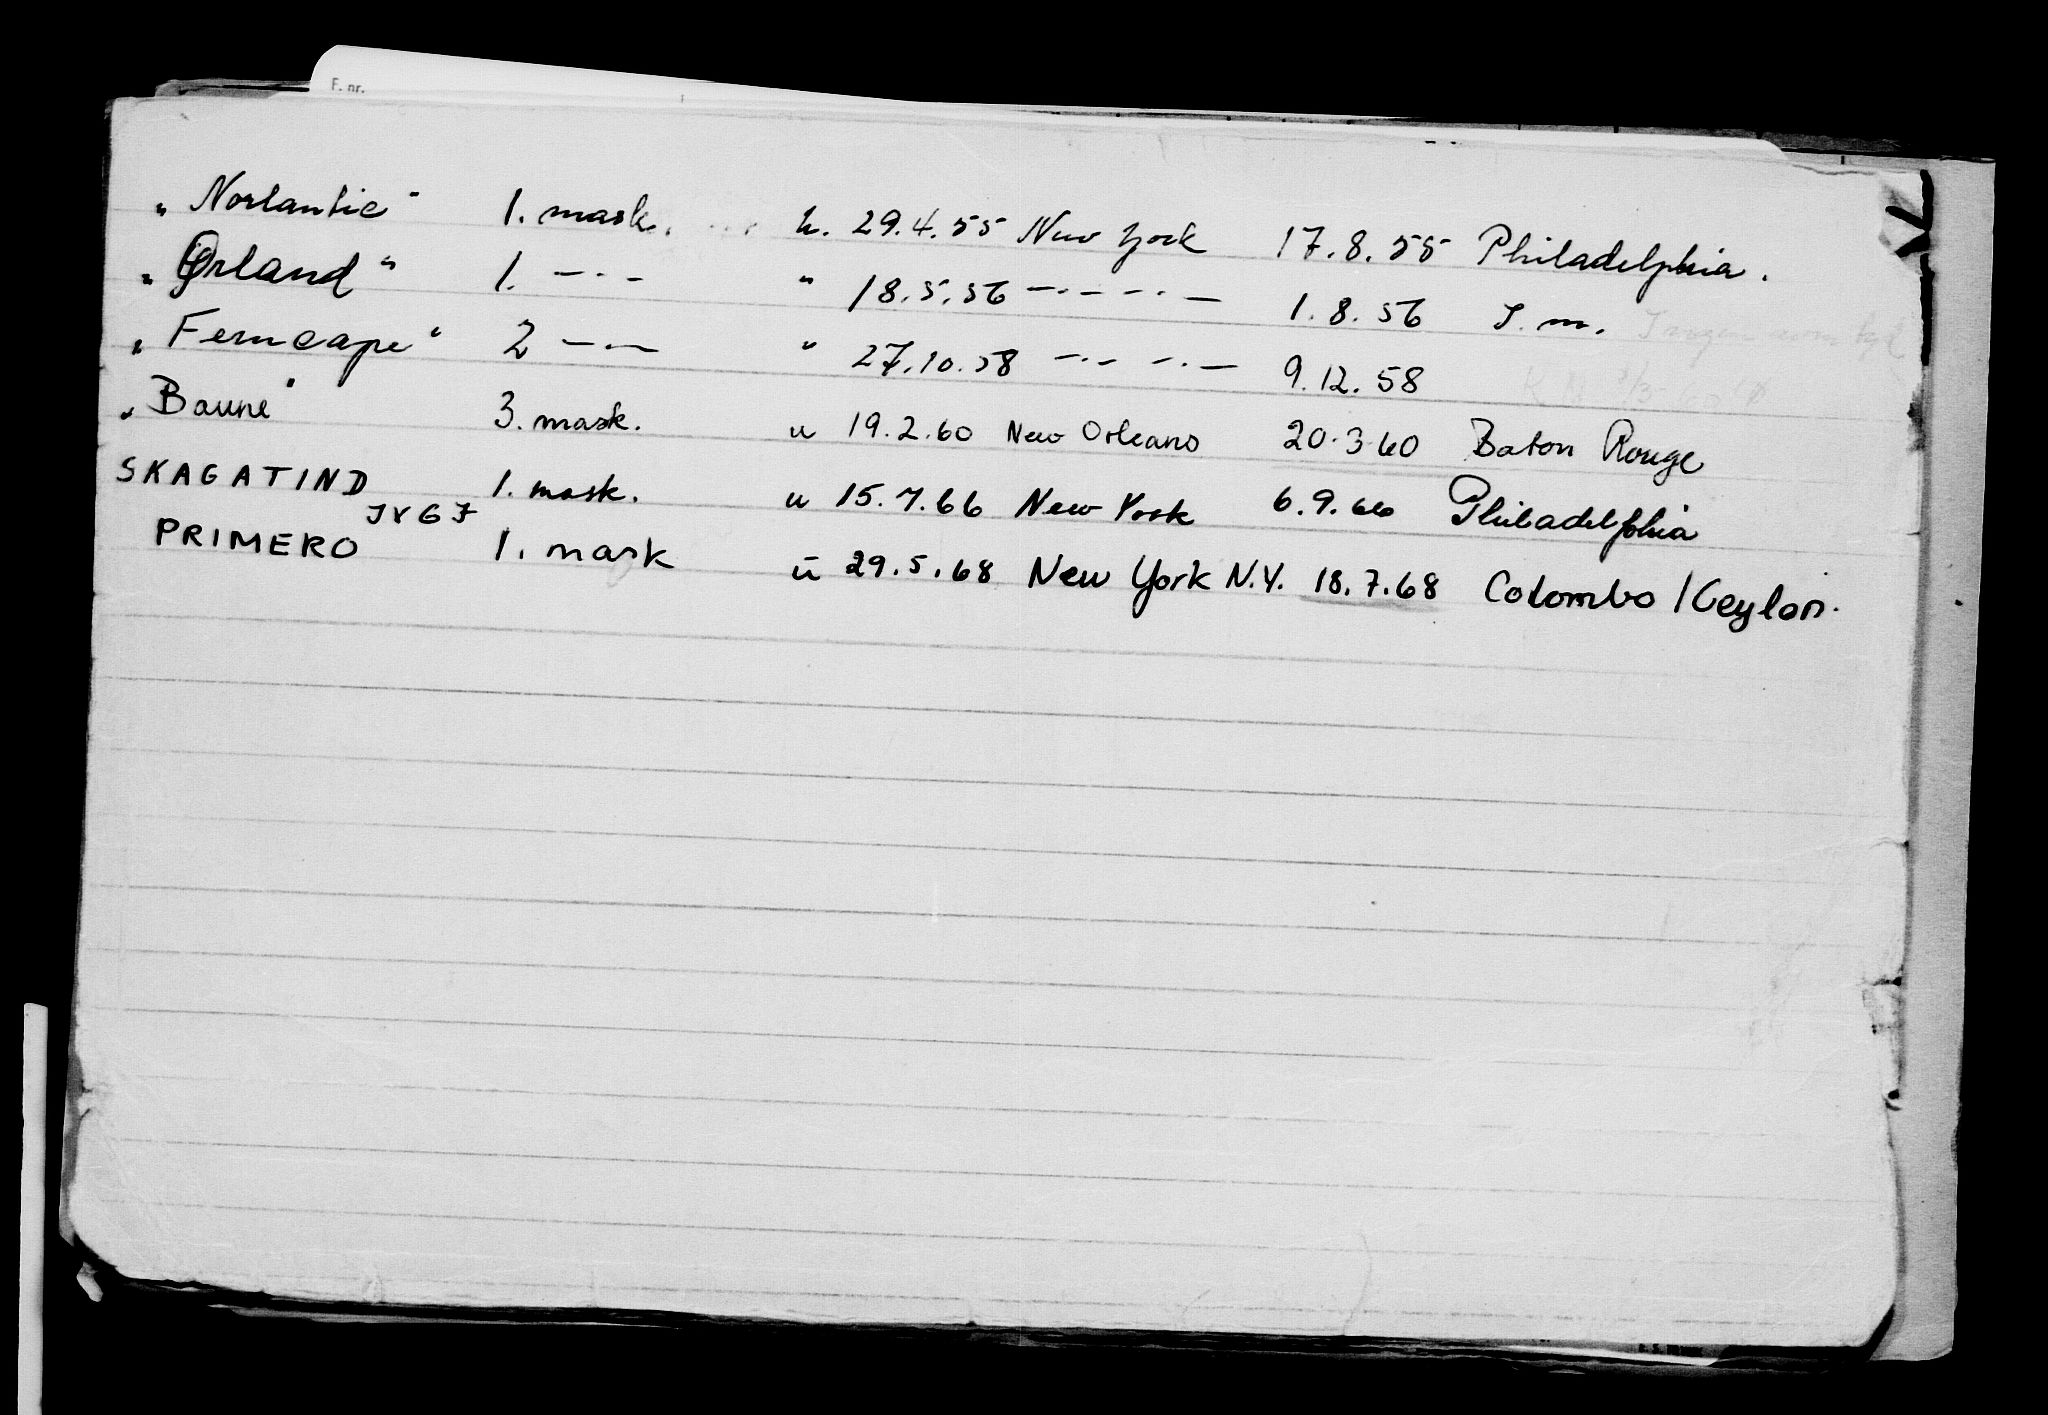 F. nr.
„Norlantic" 1. mask. u. 29.4.55 New York 17.8.55 Philadelphia.
„Ørland" 1. —·— " 18.5.56 —·— —·— 1.8.56 S. m.
„Ferncape" 2 —·— " 27.10.58 —·— —·— 9.12.58
„Baune" 3. mask. u 19.2.60 New Orleans 20.3.60 Baton Rouge
SKAGATIND 1. mask. u 15.7.66 New York 6.9.66 Philadelphia
JXGJ
PRIMERO 1. mask u 29.5.68 New York N.Y. 18.7.68 Colombo / Ceylon.